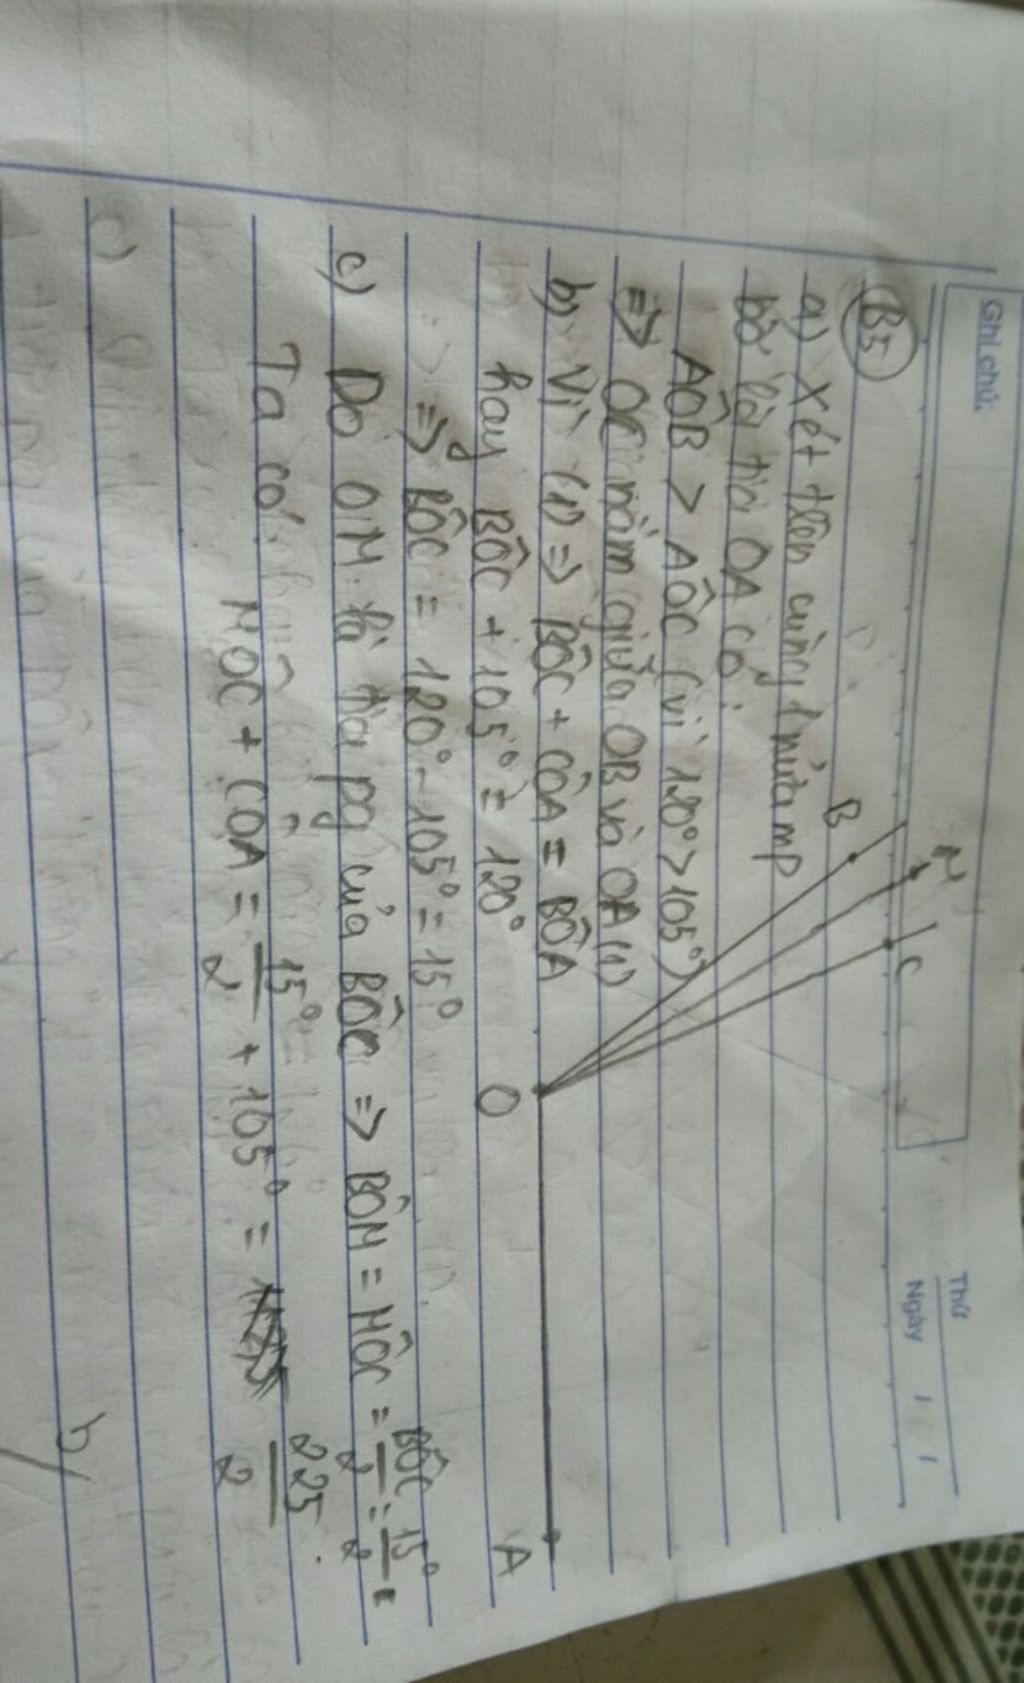 Ghi chú:
Thứ
Ngày / /
B5
a) Xét trên cùng 1 nửa mp
bờ là tia OA có:
AÔB > AÔC (vì 120° > 105°)
=> OC nằm giữa OB và OA (1)
b) Vì (1) => BÔC + CÔA = BÔA
hay BÔC + 105° = 120°
=> BÔC = 120° - 105° = 15°
c) Do OM là tia pg của BÔC => BÔM = MÔC = BÔC/2 = 15°/2
Ta có:
MÔC + CÔA = 15°/2 + 105° = 225/2
B
M
C
O
A